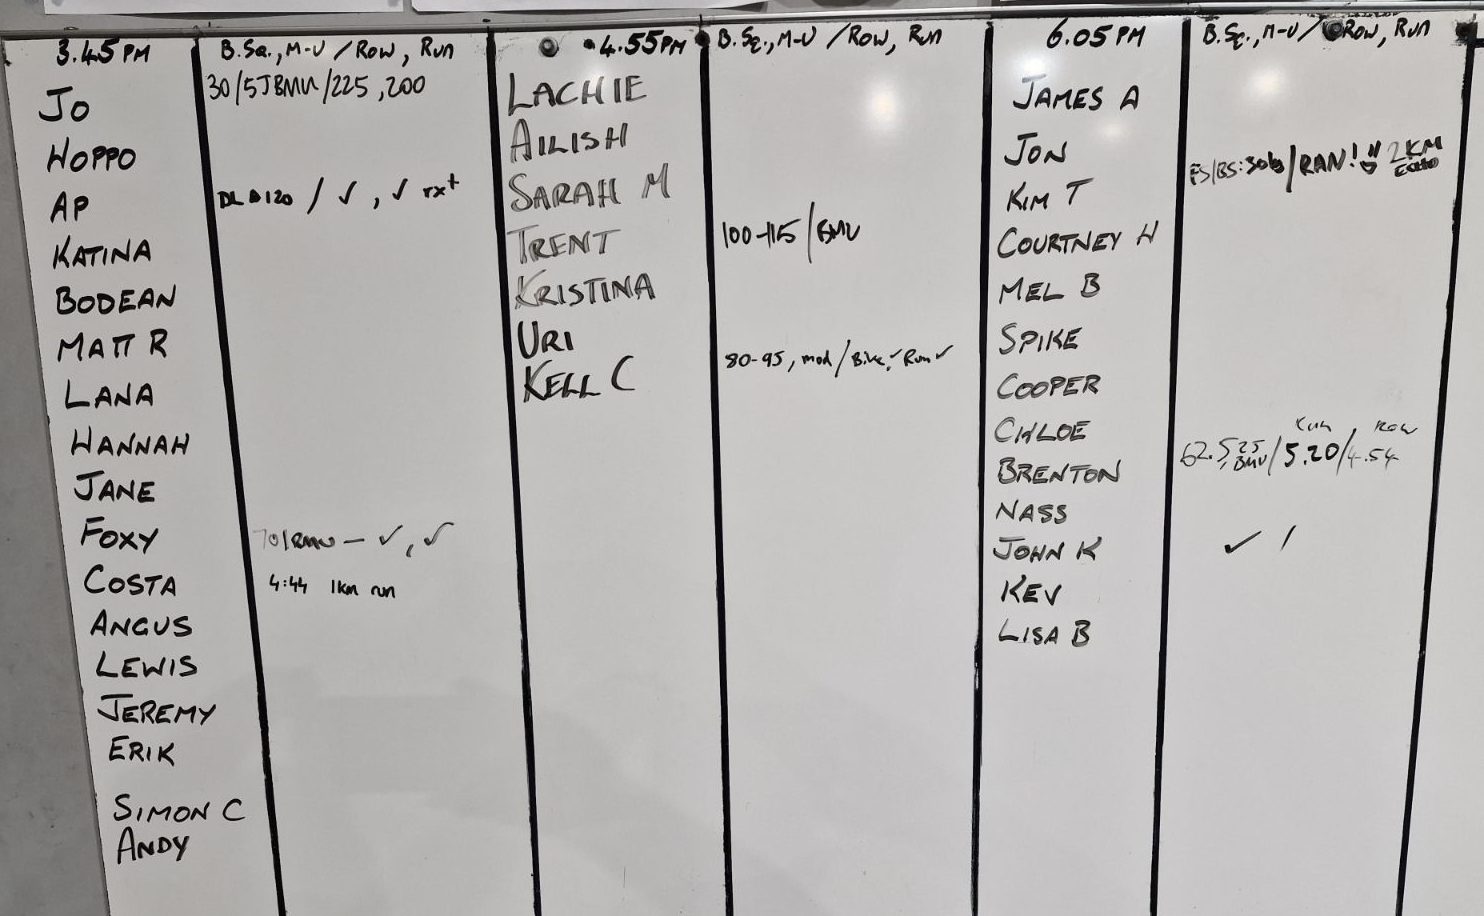 3.45 PM
B.SQ., M-U / ROW, RUN
JO
30/5JBMU/225, 200
HOPPO
AP
DL @ 120 / ✓, ✓ rx+
KATINA
BODEAN
MATT R
LANA
HANNAH
JANE
FOXY
70/RMU – ✓, ✓
COSTA
4:44 1km run
ANGUS
LEWIS
JEREMY
ERIK
SIMON C
ANDY
4.55PM
B.SQ., M-U / ROW, RUN
LACHIE
AILISH
SARAH M
TRENT
100-115/BMU
KRISTINA
URI
KELL C
80-95, mod / Bike ✓, Run ✓
6.05 PM
B.SQ., M-U / ROW, RUN
JAMES A
JON
FS/BS: 30kg / RAN! 2KM
KIM T
COURTNEY H
MEL B
SPIKE
COOPER
CHLOE
RUN, ROW
62.5, 25 BMU / 5.20 / 4.54
BRENTON
NASS
JOHN K
✓ /
KEV
LISA B